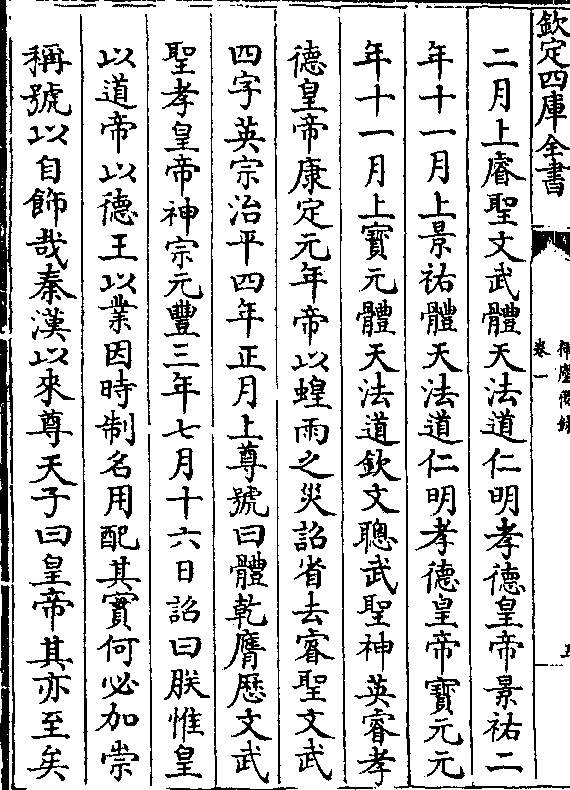 欽定四庫全書
卷一
二月上睿聖文武體天法道仁明孝德皇帝景祐二
年十一月上景祐體天法道仁明孝德皇帝寳元元
年十一月上寳元體天法道欽文聰武聖神英睿孝
德皇帝康定元年帝以蝗雨之災詔省去睿聖文武
四字英宗治平四年正月上尊號曰體乾膺歴文武
聖孝皇帝神宗元豐三年七月十六日詔曰朕惟皇
以道帝以德王以業因時制名用配其實何必加崇
稱號以自飾哉秦漢以來尊天子曰皇帝其亦至矣